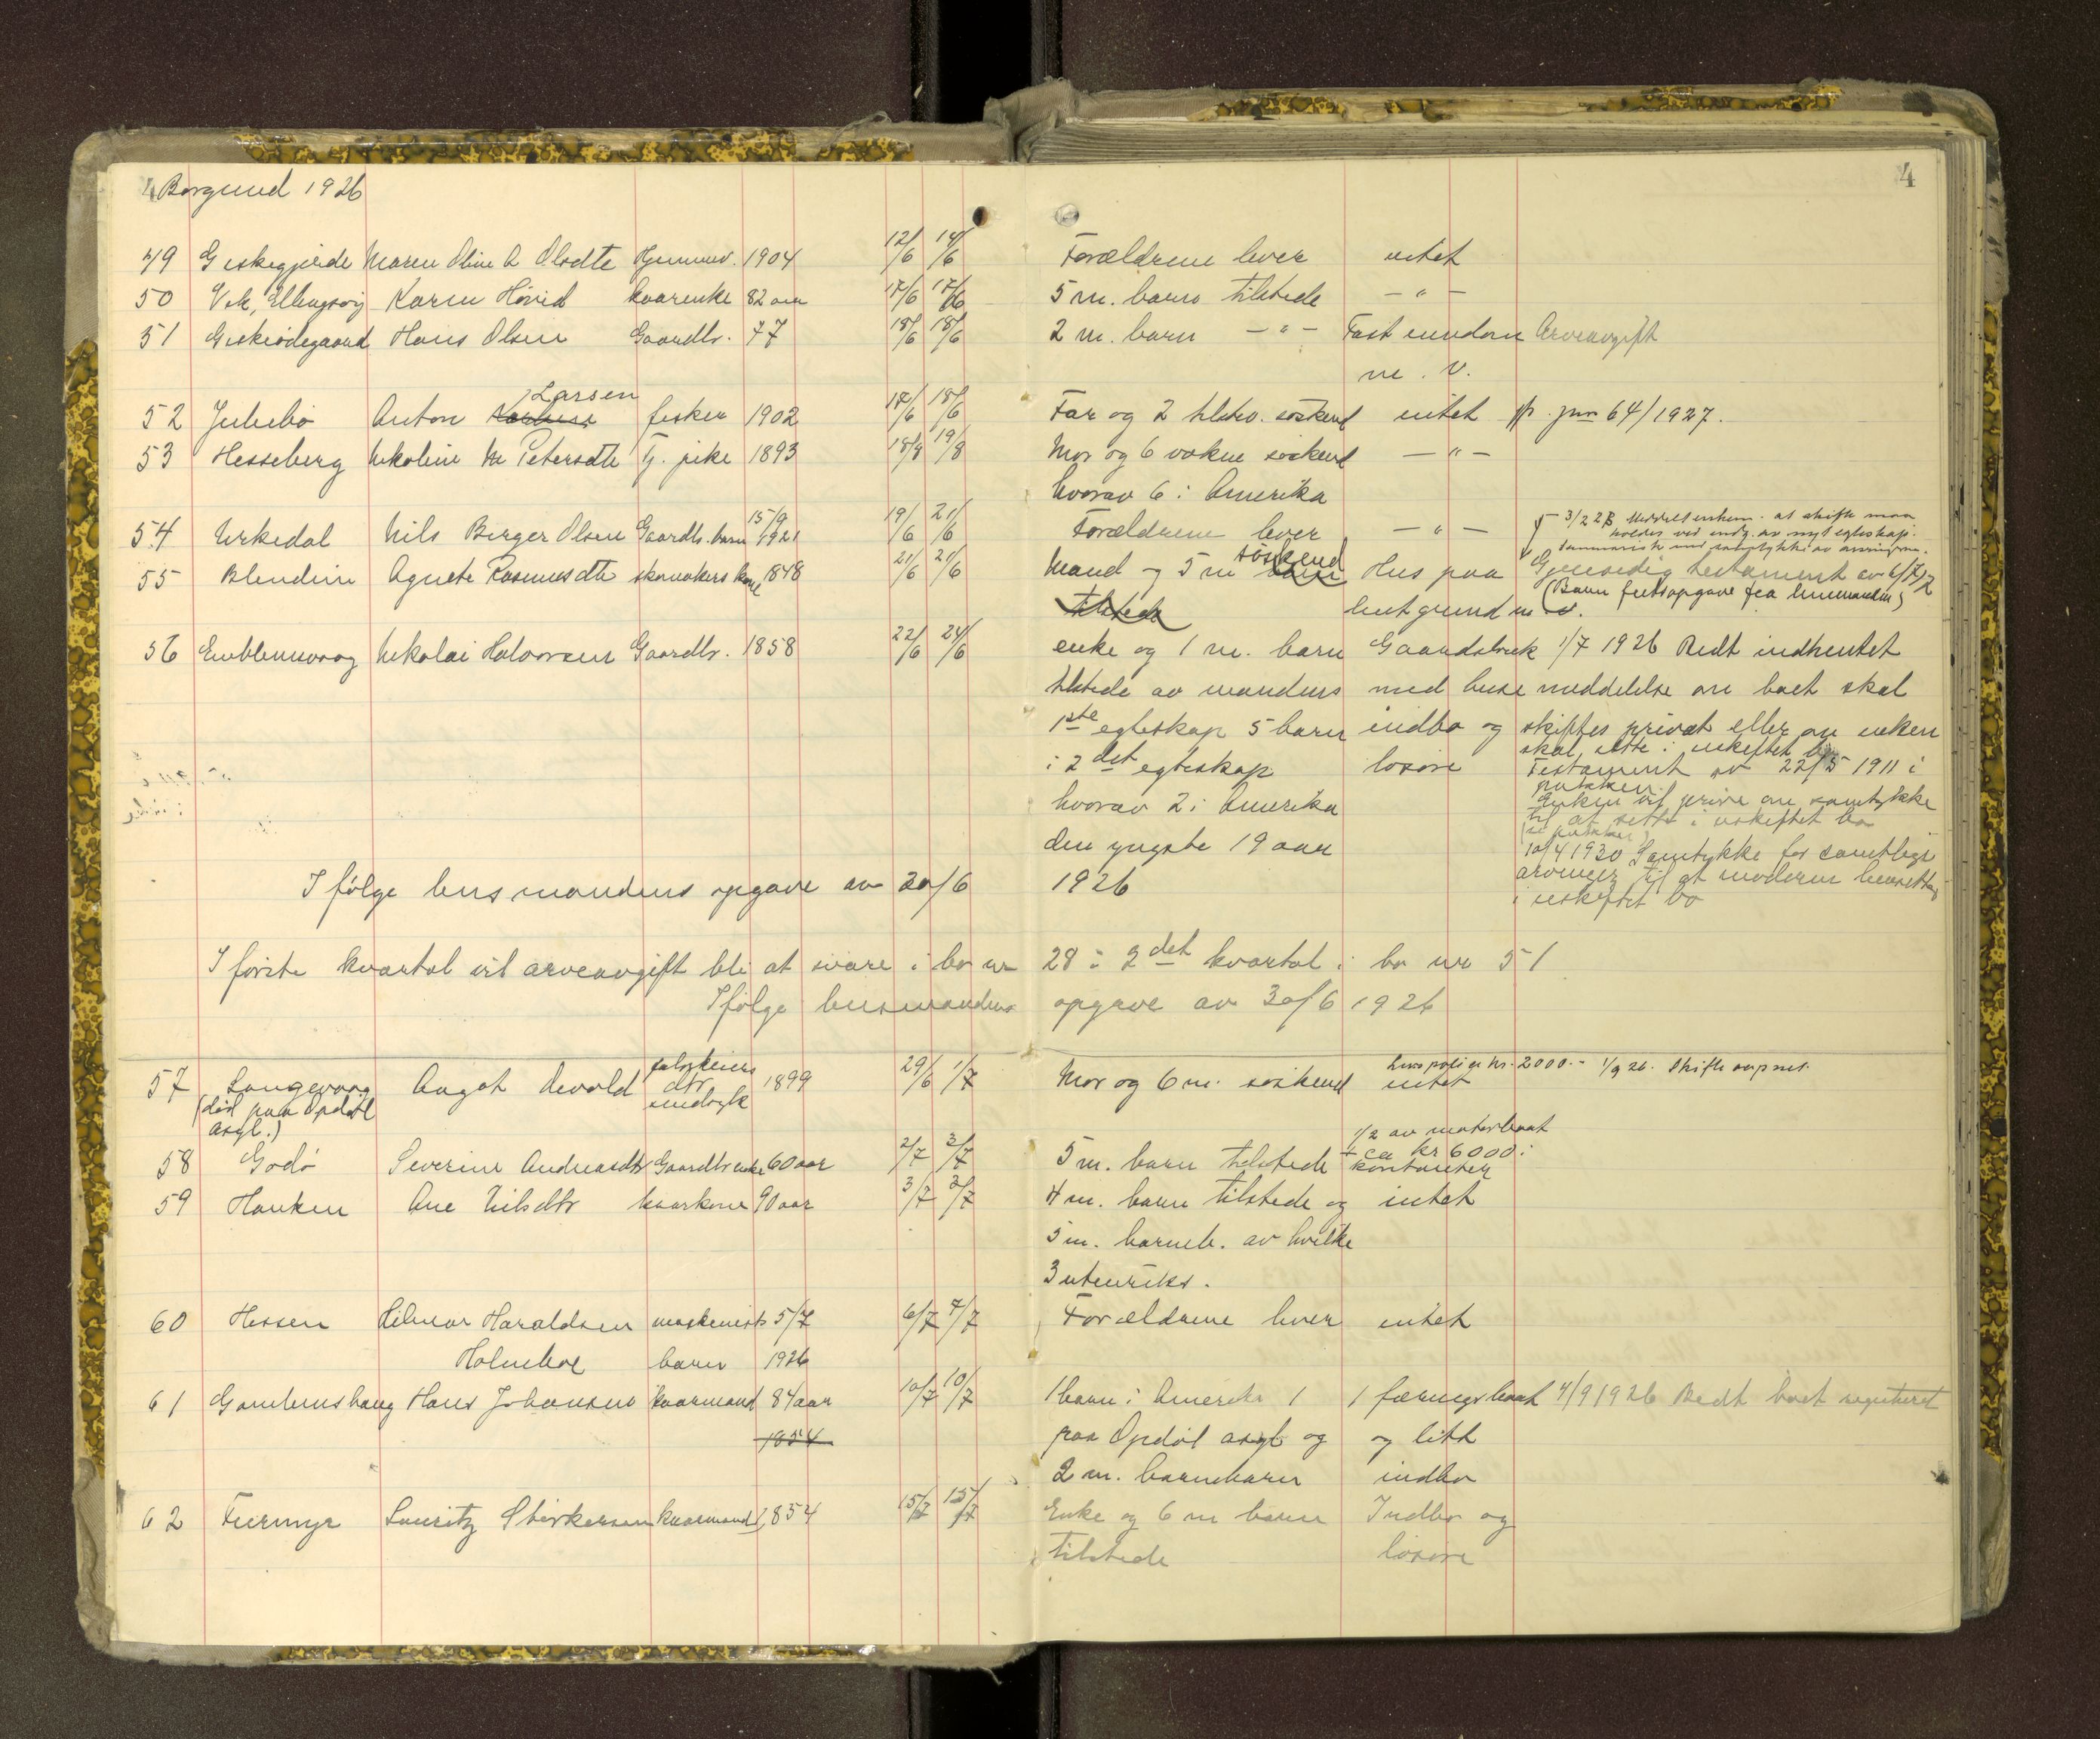 4 Borgund 1926
4
49 Giskegjerde Maren Oline A Olsdtr Hjemmev. 1904 12/6 14/6 Forældrene lever intet
50 Vik, Ellingsøy Karen Hovid kaarenke 82 aar 17/6 17/6 5 m. barn tilstede - " -
51 Giskeødegaard Hans Olsen Gaardbr. 77 18/6 18/6 2 m. barn - " - Fast eiendom Arveavgift
m. v.
Larsen
52 Julebø Anton fisker 1902 17/6 18/6 Far og 2 tilstv. søskend intet jr 64/1927.
53 Hesseberg Nikoline M Petersdtr Tj. pike 1893 18/8 19/8 Mor og 6 voksne søskend - " -
hvorav 6 i Amerika
15/9
54 Urkedal Nils Birger Olsen Gaardbr. barn 1921 19/6 21/6 Forældrene lever - " -
3/2 28 Meddelt enkem. at skifte maa
holdes ved indg. av nyt egteskap.
Summarisk med samtykke av arvingerne.
søskend
55 Blindein Agnete Rasmusdtr skomakers kone 1848 21/6 21/6 Mand og 5 m barn Hus paa Gjensidig testament av 6/7
tilstede leiet grund m. v. (Barn fulstopgave fra lensmanden)
56 Emblemsvaag Nikolai Halvorsen Gaardbr. 1858 22/6 24/6 enke og 1 m. barn Gaardsbruk 1/7 1926 Bedt indhentet
tilstede av mandens med huse meddelelse om boet skal
1ste egteskap 5 barn indbo og skiftes privat eller om enken
skal sitte i uskiftet bo
i 2det egteskap løsøre Testament av 22/5 1911 i
pakken.
hvorav 2 i Amerika Enken vil prøve om samtykke
til at sitte i uskiftet bo
(se pakken)
den yngste 19 aar 10/4 1930 Samtykke for samtlige
arvinger til at moderen hensitter
i uskiftet bo
I følge lensmandens opgave av 30/6 1926
I første kvartal vil arveavgift bli at svare i bo nr 28 i 2det kvartal i bo nr 51
Ifølge lensmandens opgave av 30/6 1926
57 Langevaag Aagot Devold fabrikeiers dtr ind 1899 29/6 1/7 Mor og 6 m. søskend intet livspolise kr. 2000.- 1/9 26. Skifte
(død paa Opdøl
Asyl.)
1/2 av motorbaat
58 Godø Severine Andreasdtr Gaardbr enke 60 aar 2/7 3/7 5 m. barn tilstede + ca kr 6000 i
kontanter
59 Hanken Ane Nilsdtr kaarkone 90 aar 3/7 3/7 4 m. barn tilstede og intet
5 m. barneb. av hvilke
3 utenriks.
60 Hessen Hilmar Haraldsen maskinists 5/7 6/7 7/7 Forældrene lever intet
Holmeboe barn 1926
61 Gamlemshaug Hans Johansen kaarmand 84 aar 10/7 10/7 1 barn i Amerika 1 1 færingsbaat 4/9 1926 Bedt boet registreret
1854 paa Opdøl asyl og og litt
2 m. barnebarn indbo
62 Furmyr Lauritz Styrkersen kaarmand 1854 15/7 15/7 Enke og 6 m barn Indbo og
tilstede løsøre